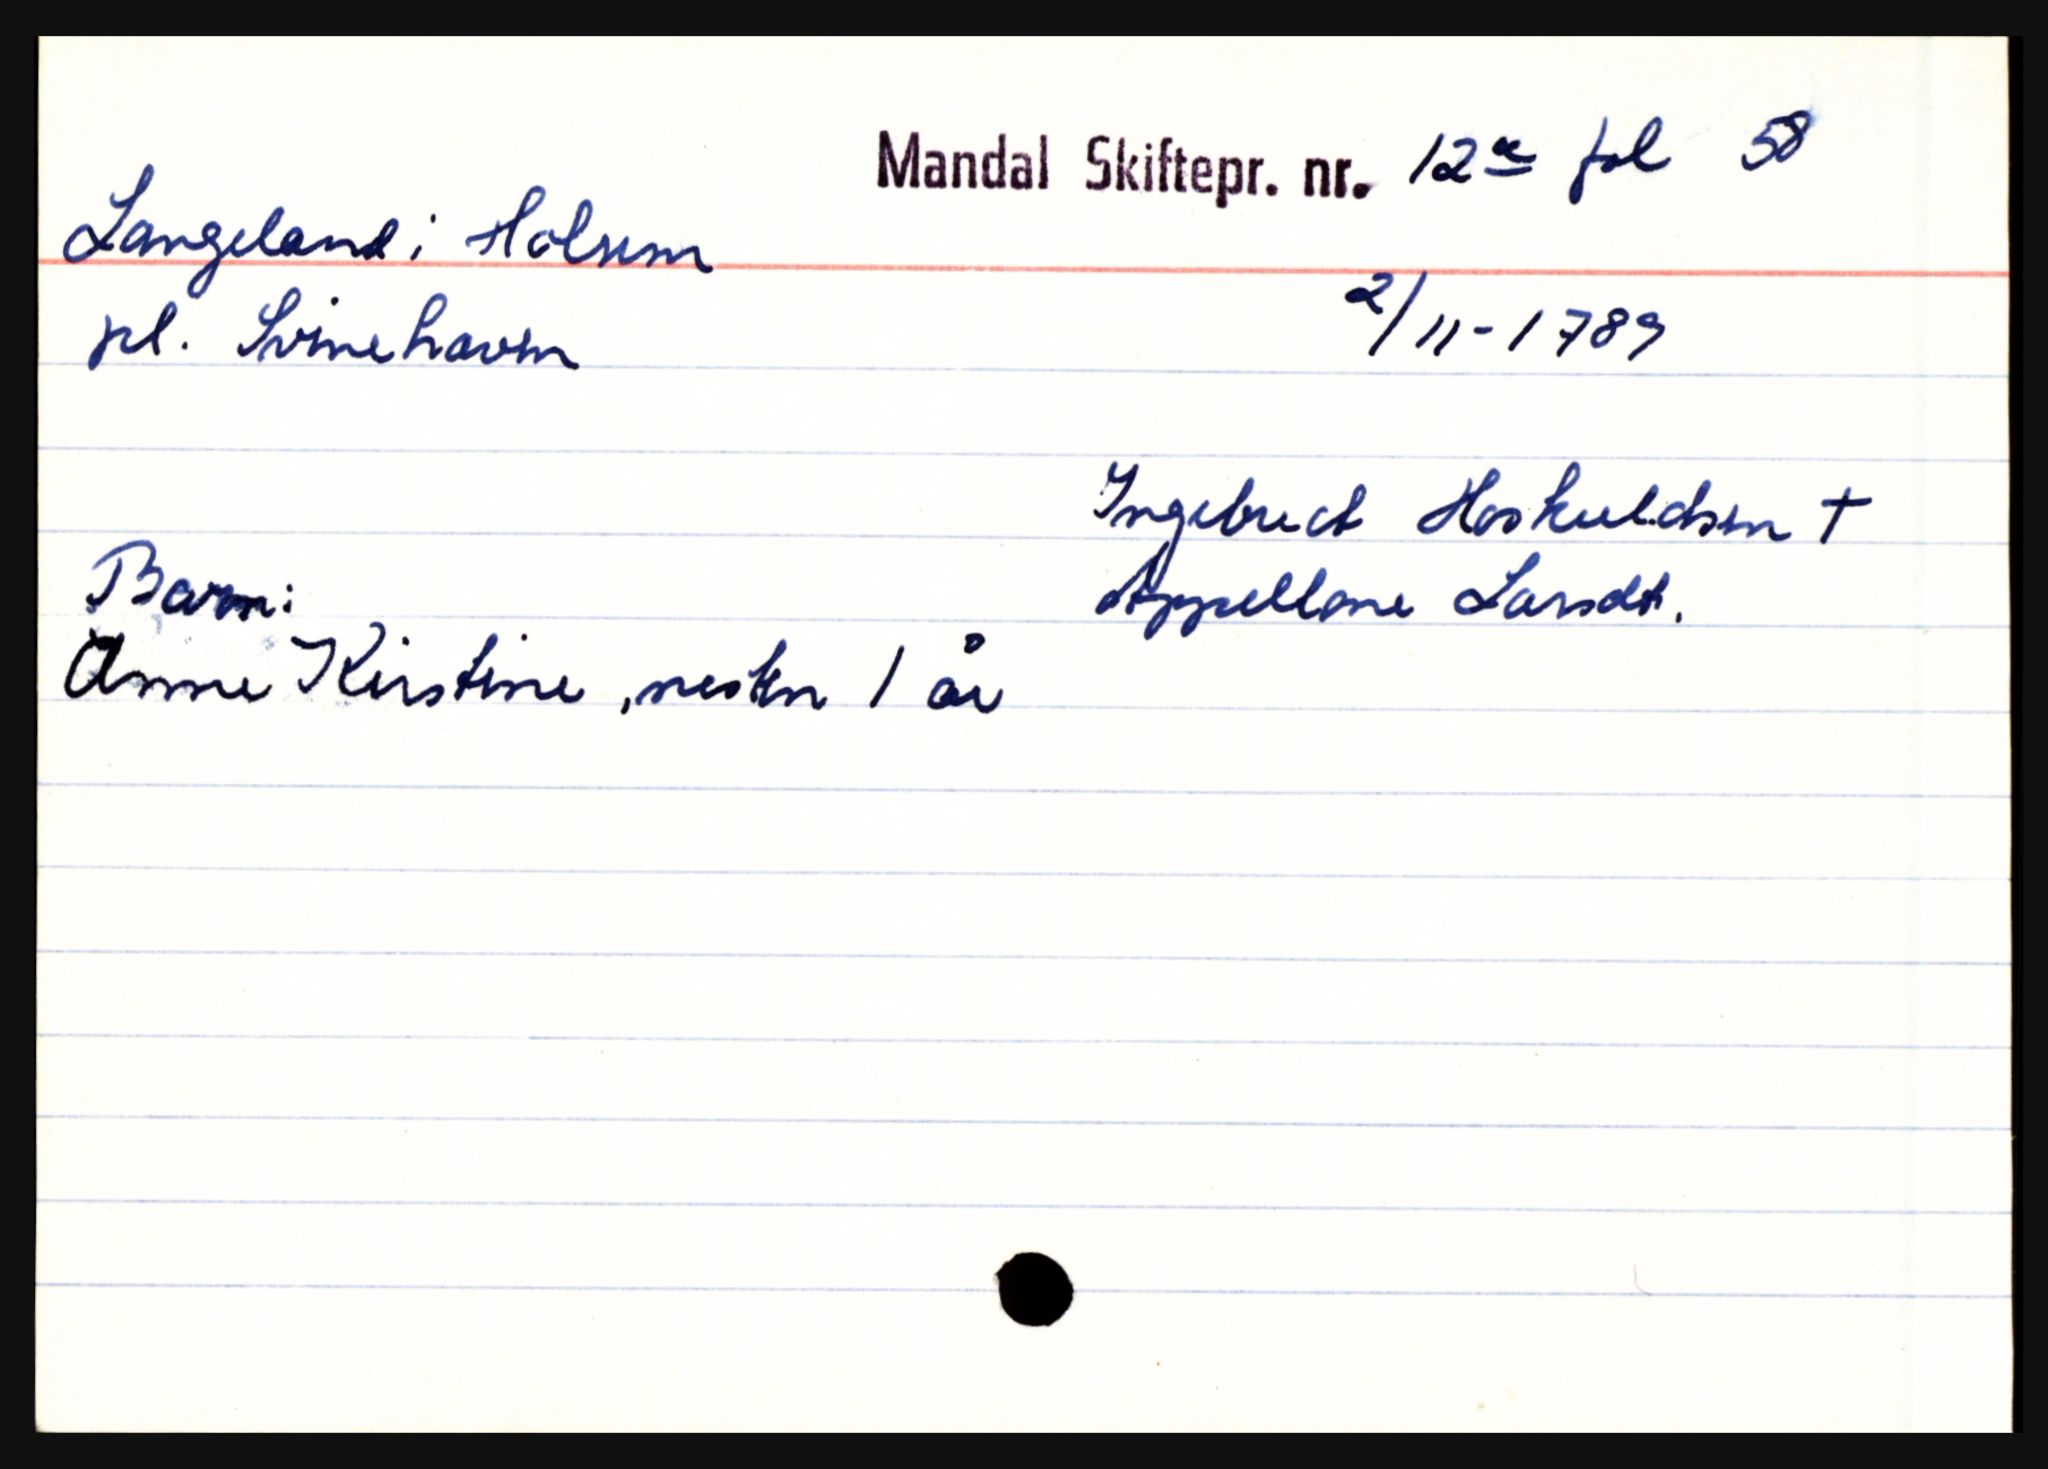 Mandal Skiftepr. nr. 12a fol 58
Langeland i Holum
pl. Svinehaven
2/11-1789
Ingebrect Hoskuldsen †
Appellone Larsdt.
Barn:
Anne Kirstine, nesten 1 år